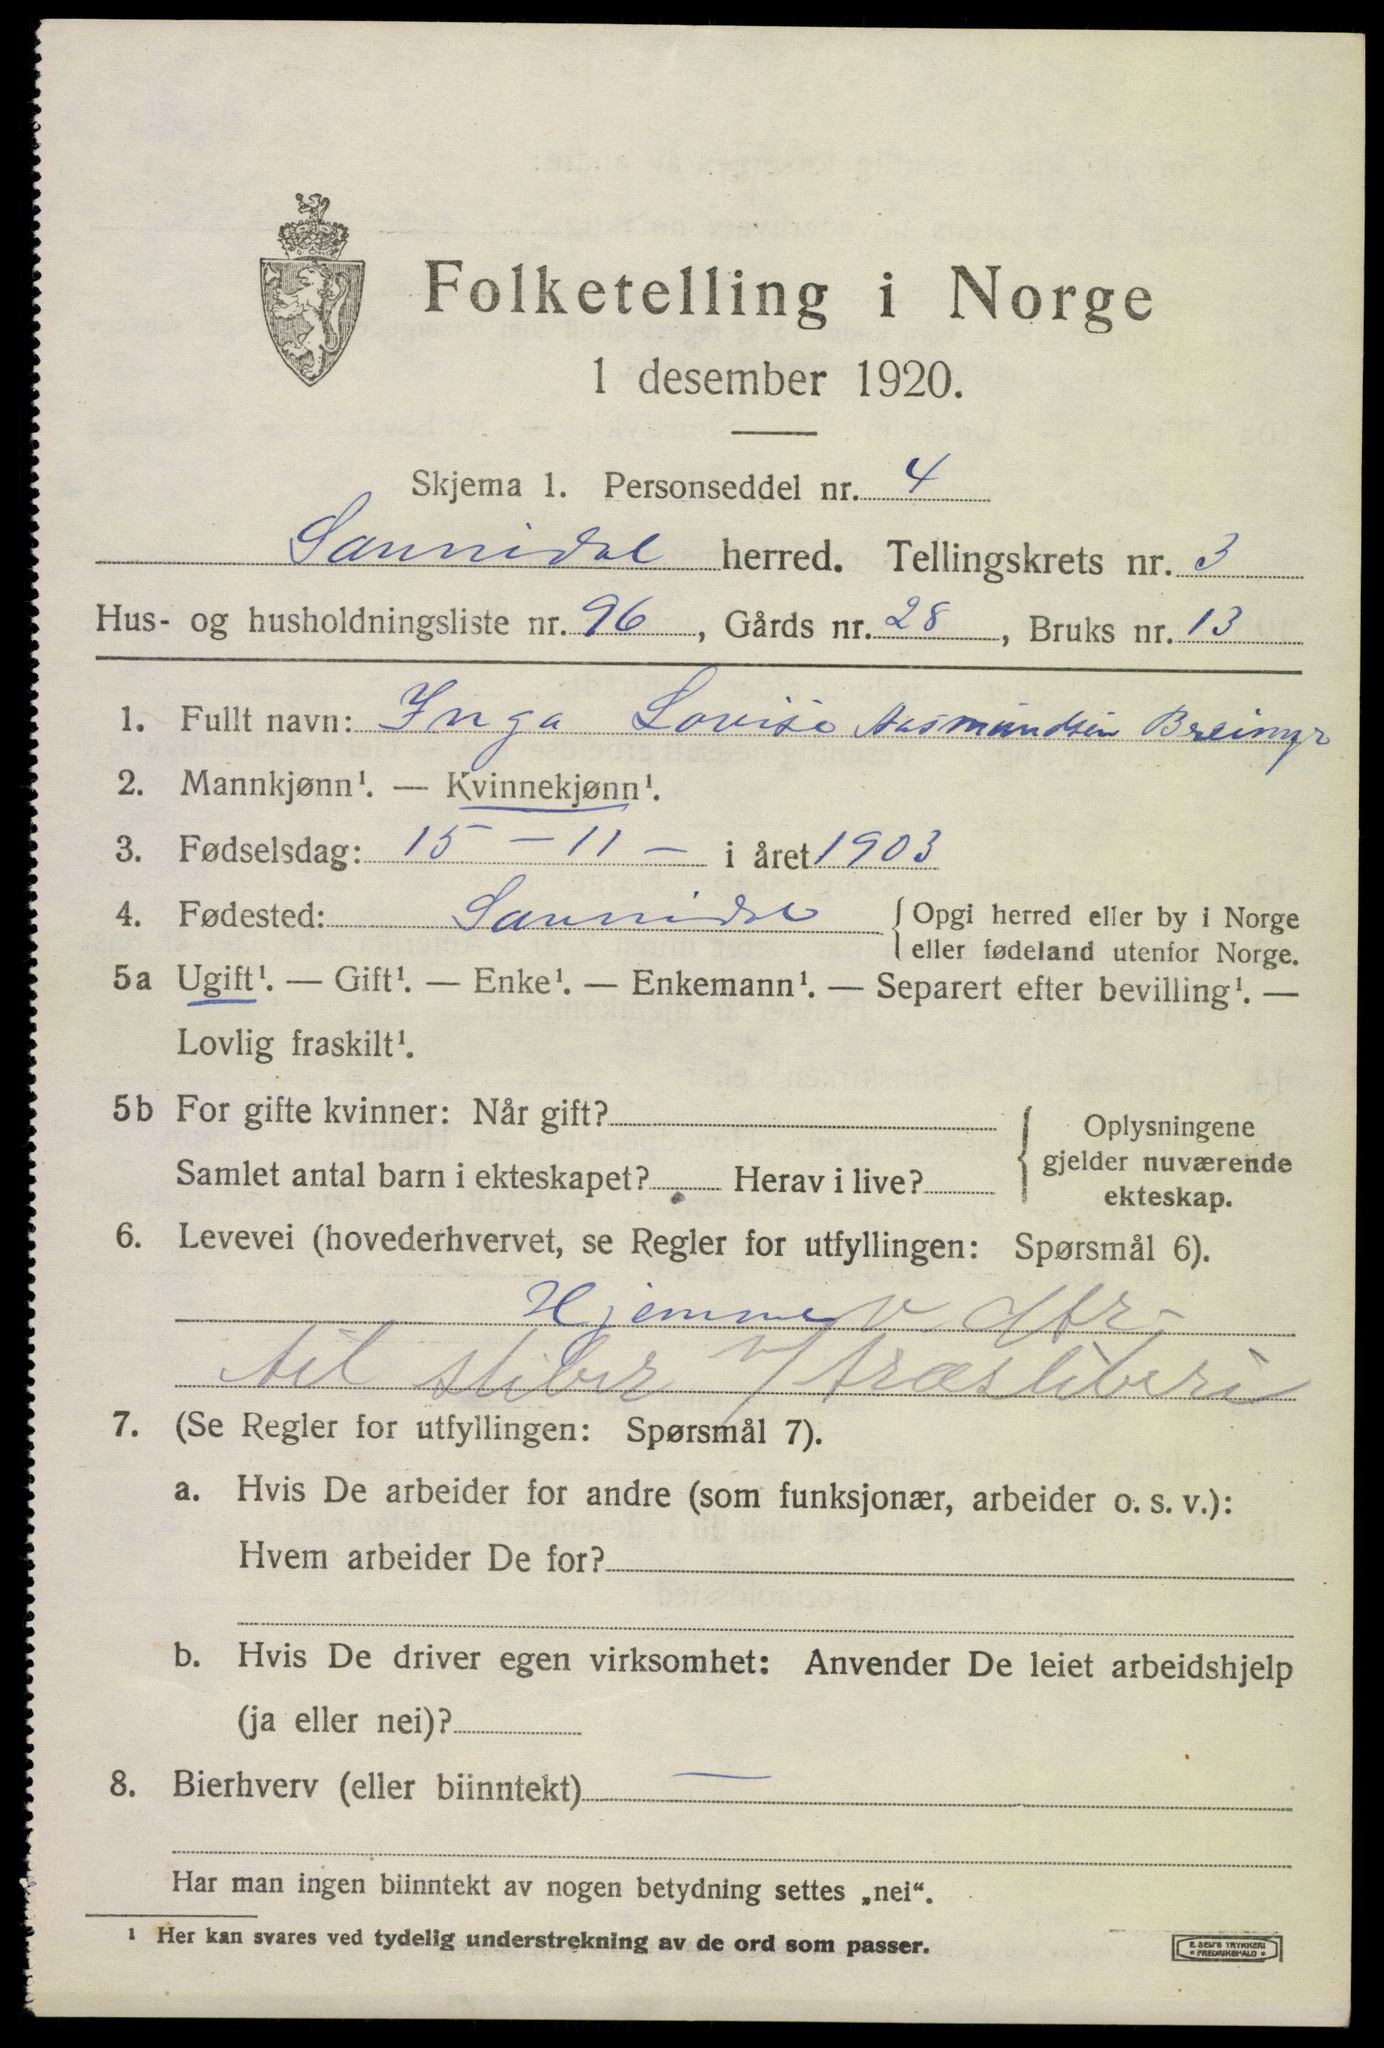 Folketelling i Norge
1 desember 1920.
Skjema 1. Personseddel nr. 4
Sannidal herred. Tellingskrets nr. 3
Hus- og husholdningsliste nr. 96, Gårds nr. 28, Bruks nr. 13
1. Fullt navn: Inga Lovise Aasmundsen Breimyr
2. Mannkjønn¹. — Kvinnekjønn¹.
3. Fødselsdag: 15 - 11 - i året 1903
4. Fødested: Sannidal { Opgi herred eller by i Norge
eller fødeland utenfor Norge.
5a Ugift¹. — Gift¹. — Enke¹. — Enkemann¹. — Separert efter bevilling¹. —
Lovlig fraskilt¹.
5b For gifte kvinner: Når gift?
Samlet antal barn i ekteskapet? Herav i live?
Oplysningene
gjelder nuværende
ekteskap.
6. Levevei (hovederhvervet, se Regler for utfyllingen: Spørsmål 6).
Hjemme v.
sliber v/ træsliberi
7. (Se Regler for utfyllingen: Spørsmål 7).
a. Hvis De arbeider for andre (som funksjonær, arbeider o. s. v.):
Hvem arbeider De for?
b. Hvis De driver egen virksomhet: Anvender De leiet arbeidshjelp
(ja eller nei)?
8. Bierhverv (eller biinntekt) —
Har man ingen biinntekt av nogen betydning settes „nei“.
¹ Her kan svares ved tydelig understrekning av de ord som passer.
E. SEM'S TRYKKERI
• FREDRIKSHALD •